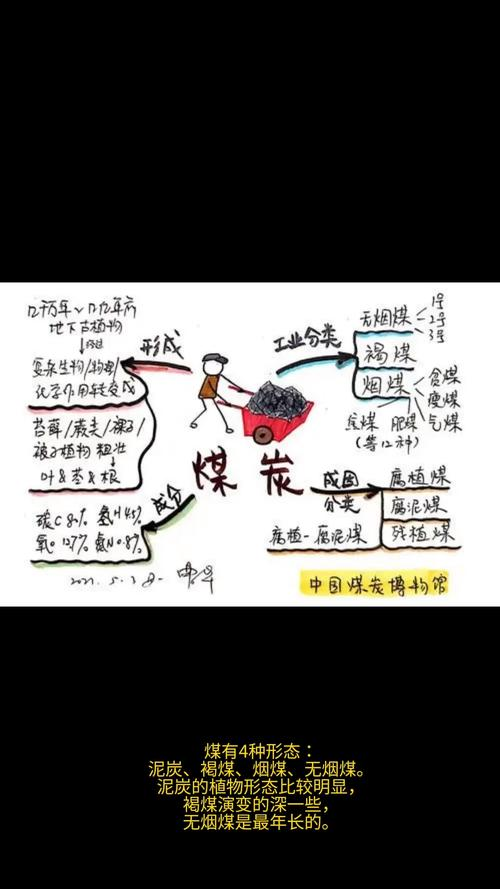 几千万年~几亿年前
地下古植物
↓经过
复杂生物/物理/
化学作用转变成
苔藓/蕨类/裸子/
被子植物 粗壮
叶&茎&根
碳C 82% 氢H 4.5%
氧O 12.7% 氮N 0.8%
形成
成分
煤炭
工业分类
无烟煤
1号
2号
3号
褐煤
烟煤
贫煤
瘦煤
气煤
肥煤
(等12种)
成因
分类
腐植煤
腐泥煤
残植煤
腐植-腐泥煤
2021.5.3
中国煤炭博物馆
煤有4种形态：
泥炭、褐煤、烟煤、无烟煤。
泥炭的植物形态比较明显，
褐煤演变的深一些，
无烟煤是最年长的。